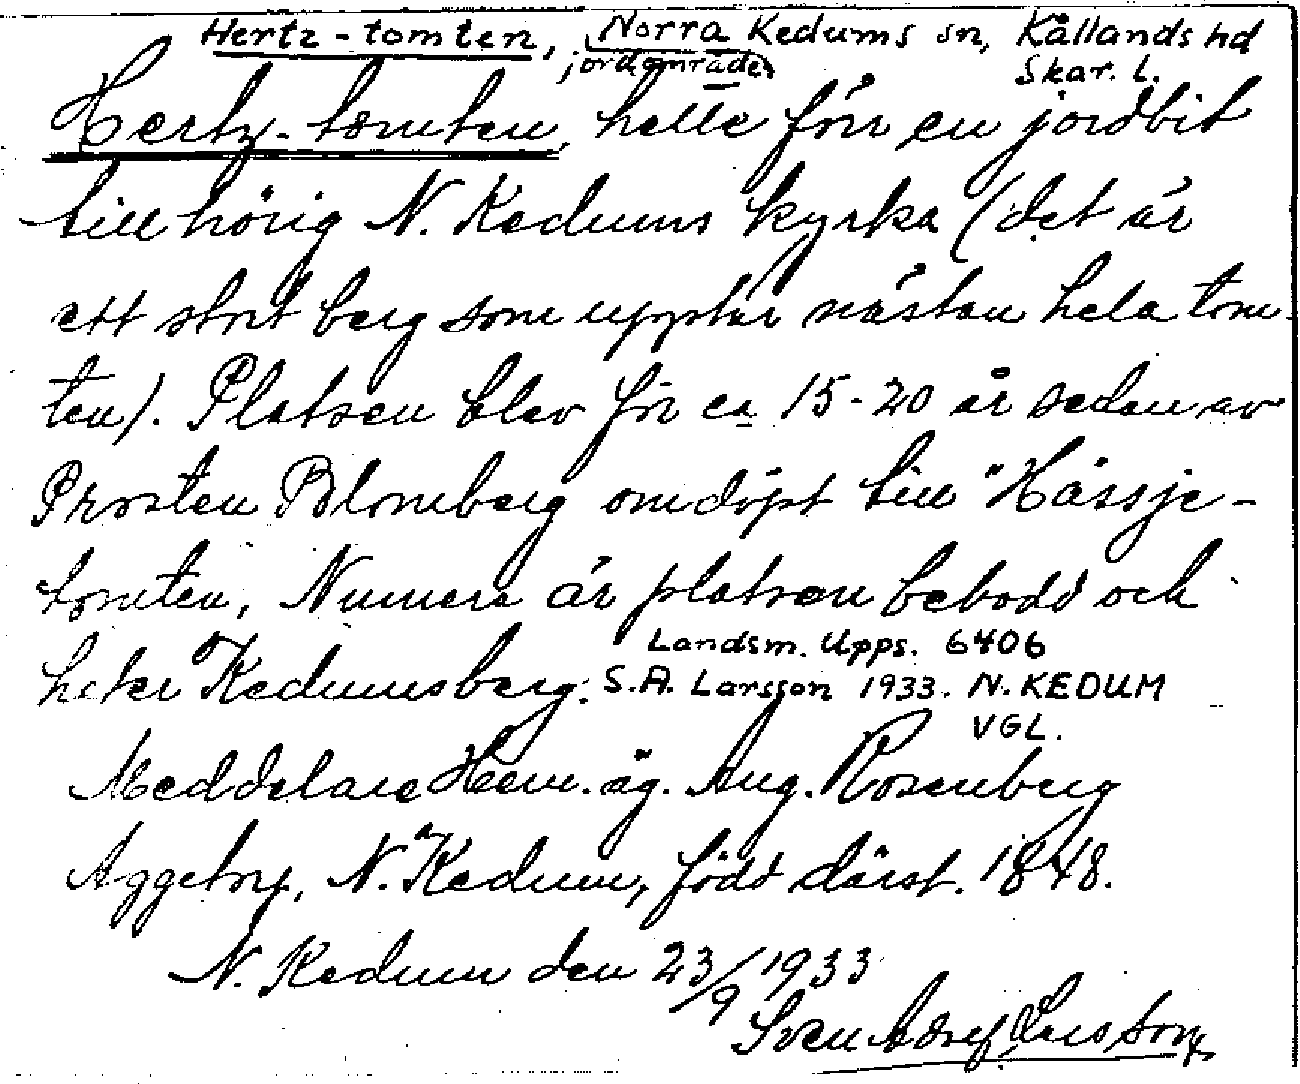 Hertz-tomten, Norra Kedums sn, Kållands hd
jordområde Skar. L.
Hertz-tomten, hette förr en jordbit
till hörig N. Kedums kyrka (det är
ett stort berg som upptar nästan hela tom-
ten). Platsen blev för ca 15-20 år sedan av
Prosten Blomberg omdöpt till "Hässje-
tomten, Numera är platsen bebodd och
heter Kedumsberg.
Landsm. Upps. 6406
S.A. Larsson 1933. N. KEDUM
VGL.
Meddelare Hem. äg. Aug. Rosenberg
Aggetorp, N. Kedum, född därst. 1848.
N. Kedum den 23/9 1933
Sven Adolf Larsson